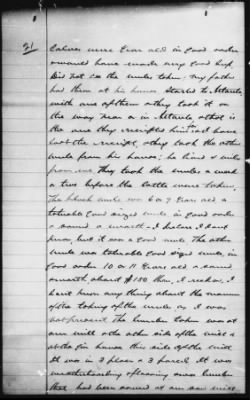 21
Calves were 1 year old in good order
& would have made very good beef
Did not see the mules taken. My father
had them at his house started to Atlanta
with one of them & they took it on
the way near or in Atlanta & that is
the one they receipted him &
lost the receipt, they took the other
mule from his house; he hired a mule
from me They took the mules a week
a two before the battle were taken.
The black mule was 6 or 7 years old a
tolerable good sized mule in good order
& sound & worth — I believe I dont
know, but it was a good mule The other
mule was tolerable good sized mule, in
good order 10 or 11 years old & sound
& worth about $150 then, I reckon. I
dont know any thing about the manner
of the taking of the mules as I was
not present The lumber taken was at
our mill & the other side of the mill &
at the gin house this side of the mill.
It was in 3 places & 3 parcels. It was
weatherboarding & flooring & some lumber
that had been sawed at our saw mill